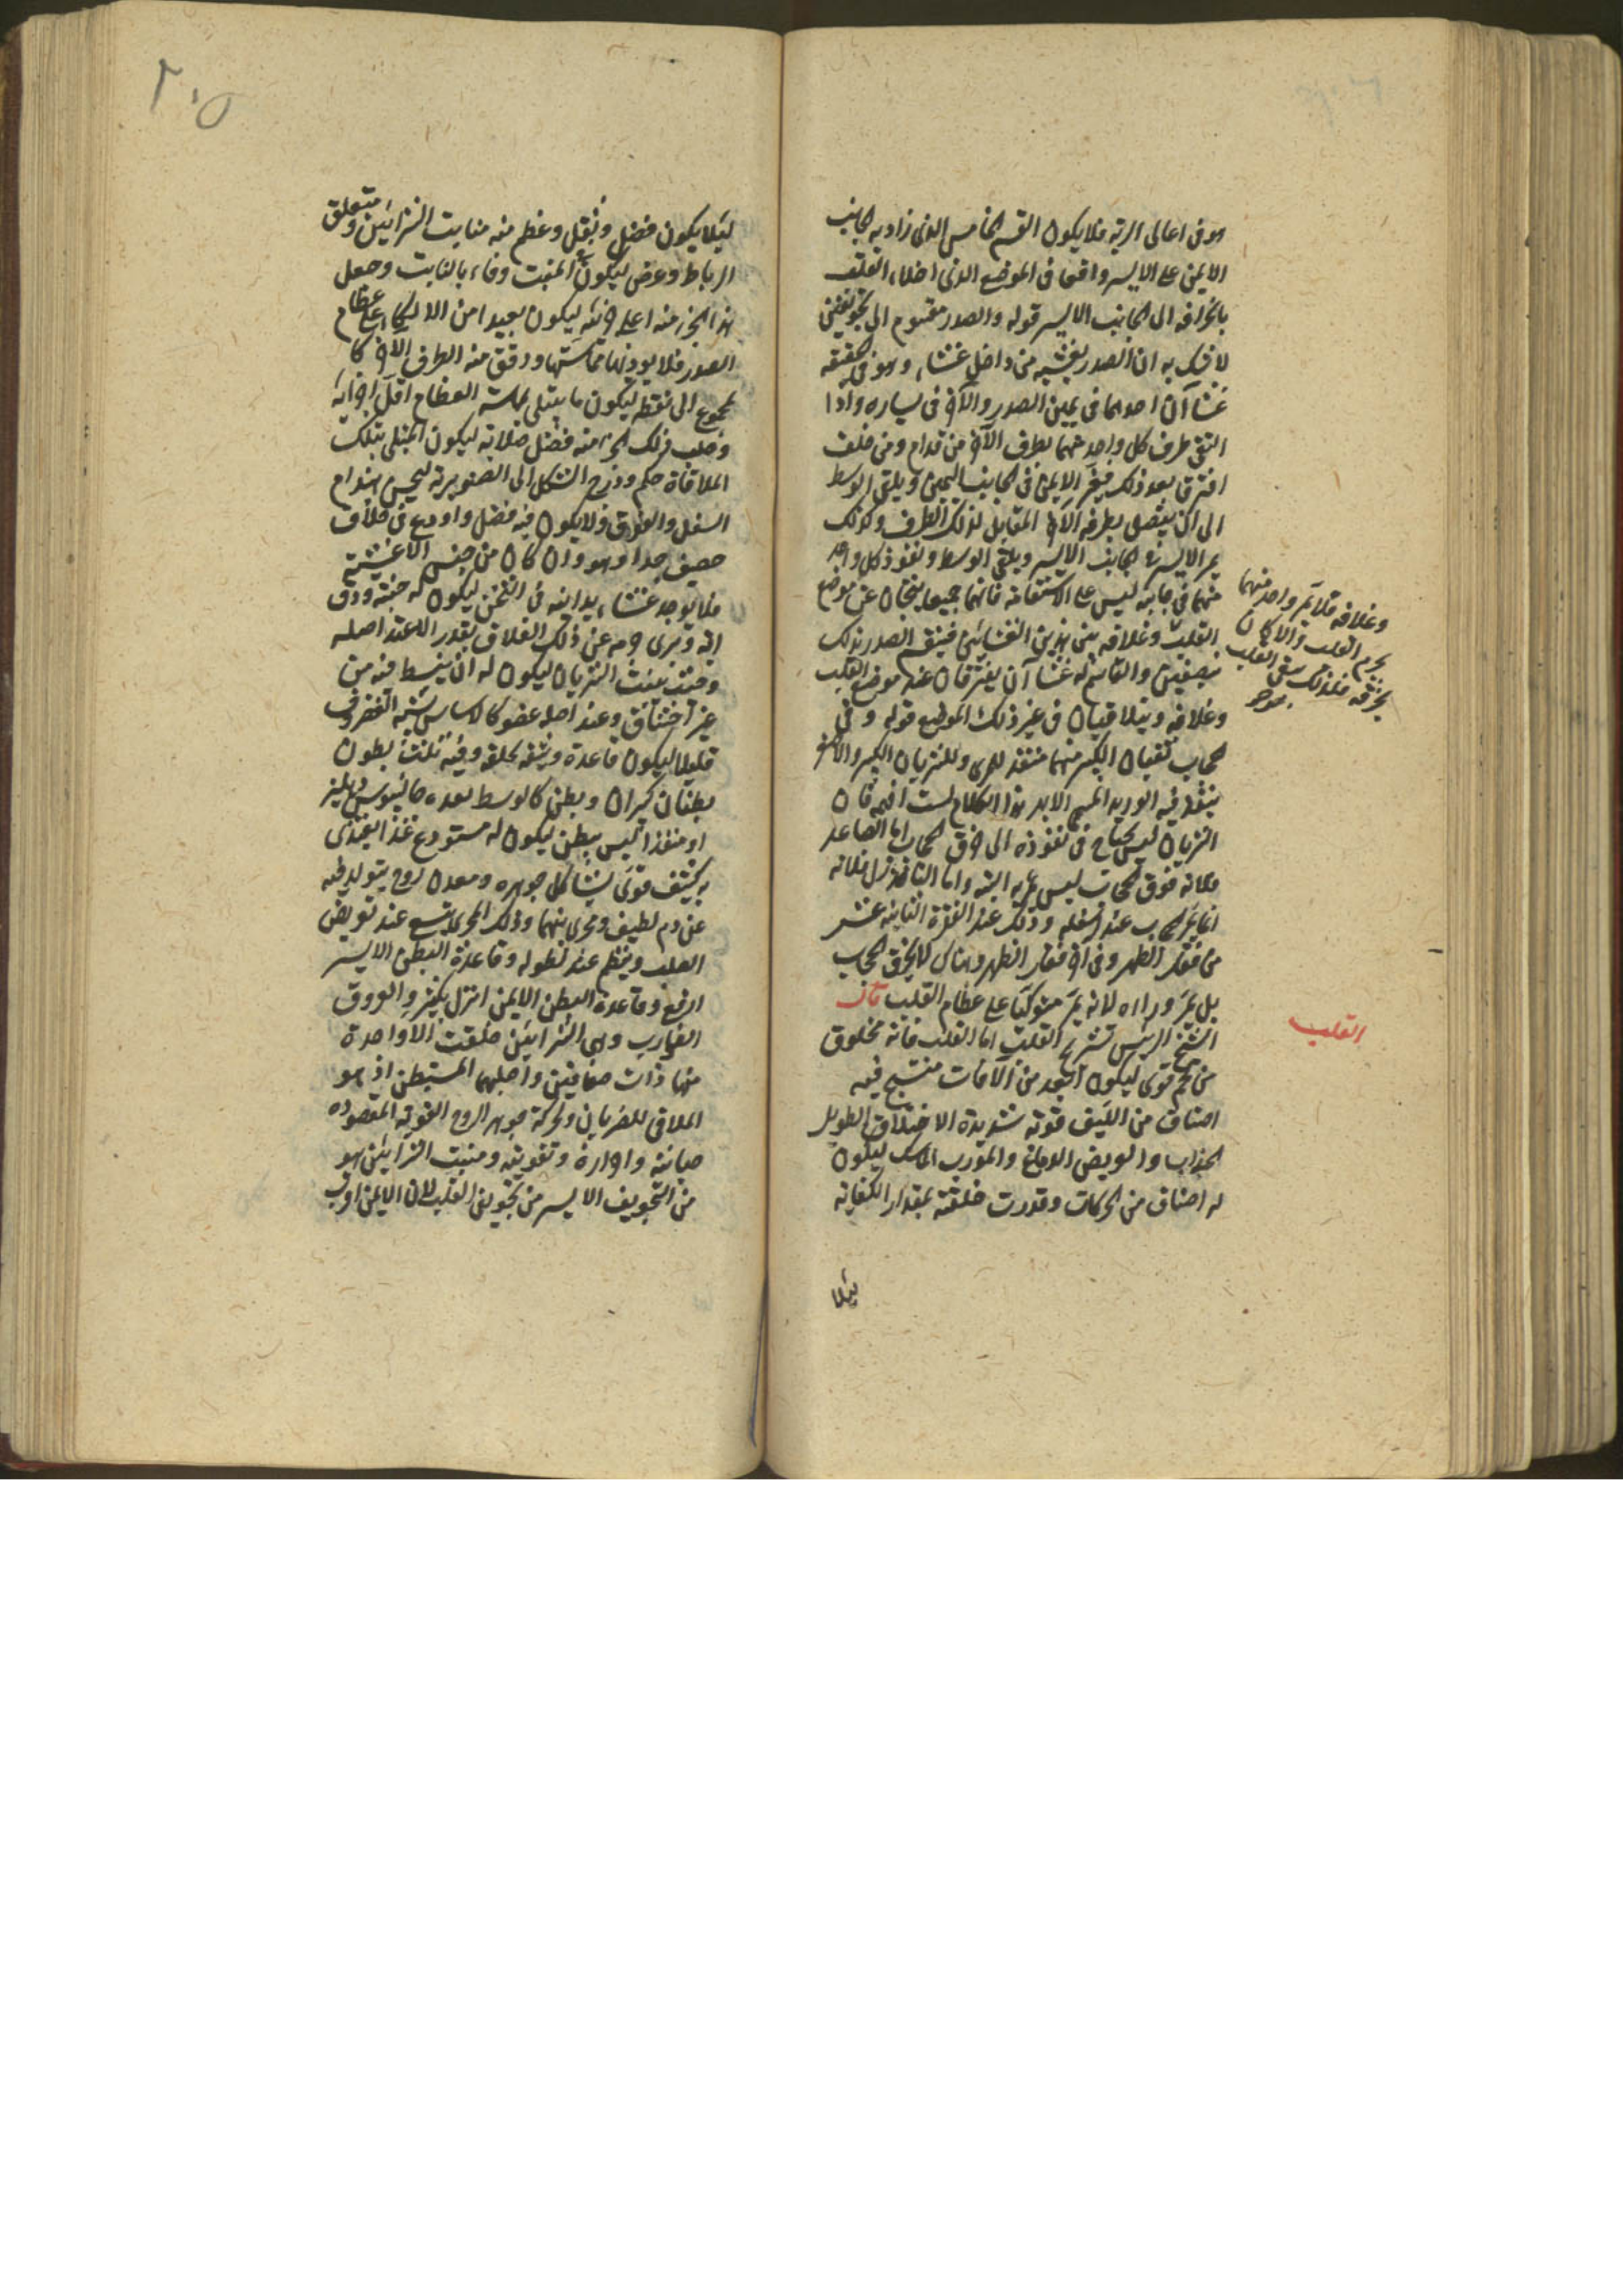 هو في اعالى الرية فلا يكون القسم الخامس الذي زاد به الجانب
الايمن على الايسر واقعا فى الموضع الذي اخلاه القلب
بانحرافه الى الجانب الايسر قوله والصدر مقسوم الى تجويفين
لا شك به ان الصدر يغشيه من داخل غشاء وهو فى الحقيقة
غشاآن احدهما فى يمين الصدر والآخر فى يساره واذا
التقى طرف كل واحد منهما بطرف الآخر من قدام ومن خلف
افترق بعد ذلك فيمر الايمن فى الجانب اليمين ويلتقى الوسط
الى ان يتصل بطرفه الآخر المقابل لذلك الطرف وكذلك
يمر الايسر فى الجانب الايسر ويلتقى الوسط ونفوذ كل واحد
منهما فى جانبه ليس على الاستقامة فانهما جميعا ينحيان عن موضع
القلب وغلافه بين هذين الغشائين فينقسم الصدر بذلك
بنصفين والقاسم له غشاآن يفترقان عند موضع القلب
وغلافه ويتلاقيان فى غير ذلك الموضع قوله وفى
الحجاب ثقبان الكبير منهما منفذ للمرى وللشريان الكبير والاصغر
ينفذ فيه الوريد المسمى الابهر هذا الكلام لست افهمه فان
الشريان ليس يحتاج فى نفوذه الى خرق الحجاب اما الصاعد
فلانه فوق الحجاب ليس يمر به البتة واما النافذ نازلا فلانه
انما يمر بالحجاب عند اسفله وذلك عند الفقرة الثانية عشر
من فقار الظهر وفى آخر فقار الظهر وهناك لا يخرق الحجاب
بل يمر وراءه لانه يمر متوكئا على عظام القلب قال
الشيخ الرئيس تشريح القلب اما القلب فانه مخلوق
من لحم قوى ليكون ابعد من الآفات منتسج فيه
اصناف من الليف قوية شديدة الاختلاف الطويل
الجذاب والعريض الدافع والمورب الماسك ليكون
له اصناف من الحركات وقدرت خلقته بمقدار الكفاية
لئلا
وغلافه فلا يمر واحد منهما
بجرم القلب والا كان
يخرقه فلذلك يبقى القلب
القلب
٢٠٥
ليلا يكون فضل وثقل وعظم منه منابت الشرائين ومتعلق
الرباط وعرض ليكون فى المنبت وقاء بالنابت وجعل
هذا الجزء منه اعلى جزئيه ليكون بعيدا من الاتكاء على عظام
الصدر فلا يوذيها مماستها ودقق منه الطرف الاخر كا
لمجموع الى نقطة ليكون ما يبتلى بماسة العظام اقل اجزائه
وصلب ذلك الجزء منه فضل صلابة ليكون المبتلى بتلك
الملاقاة حكم ودرج الشكل الى الصنوبرية ليحسن هندام
السفل والفوق ولا يكون فيه فضل واودع فى غلاف
حصيف جدا وهو وان كان من جنس الاغشية
فلا يوجد غشاء يدانيه فى الثخن ليكون له جنة ووق
اية وبرى جرمه عن ذلك الغلاف بقدر الا عند اصله
وحيث ينبت الشريان ليكون له ان ينبسط فيه من
غير اختناق وعند اصله عضو كالاساس يشبه الغضروف
قليلا ليكون قاعدة وثيقه لخلقه وفيه ثلثة بطون
بطنان كبيران وبطن كالوسط يعده جالينوس دهليز
او منفذا ليس ببطن ليكون له مستودع غذا يغتذى
به كثيف قوى يشاكل جوهره ومعدن روح يتولد فيه
عن دم لطيف ومجرى بينهما وذلك المجرى يتسع عند تعريض
القلب وينظم عند تطوله وقاعدة البطن الايسر
ارفع وقاعدة البطن الايمن انزل بكثير والعروق
الضوارب وهى الشرائين خلقت الا واحدة
منها ذات صفاقين واصلبهما المستبطن اذ هو
الملاقى للضربان ولحركة جوهر الروح القوية المقصوده
صيانته واواره وتقويته ومنبت الشرائين هو
من التجويف الايسر من تجويفى القلب لان الايمن اقرب